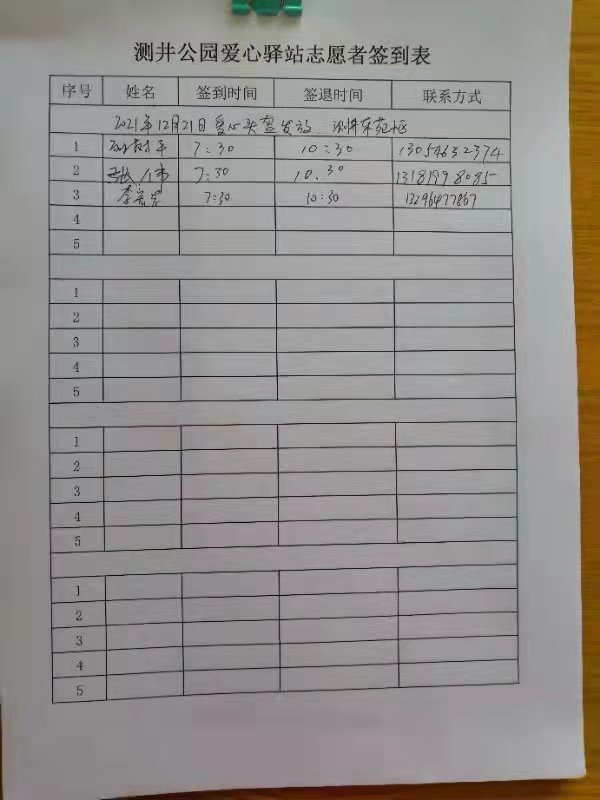 测井公园爱心驿站志愿者签到表
序号 姓名 签到时间 签退时间 联系方式
2021年12月21日 爱心头盔发放 测井东苑小区
1 7:30 10:30 13054632374
2 张 7:30 10.30 13181998085
3 李 7:30 10:30 13296477867
4
5
1
2
3
4
5
1
2
3
4
5
1
2
3
4
5